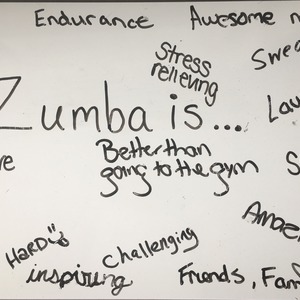 Endurance
Awesome
Stress
relieving
Zumba is...
Better than
going to the gym
HARD
challenging
inspiring
Friends, Fam